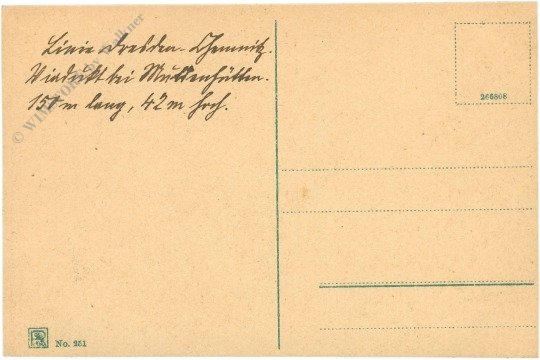 Linie Dresden-Chemnitz.
Viadukt bei Muldenhütten.
151 m lang, 42 m hoch.
266808
No. 251